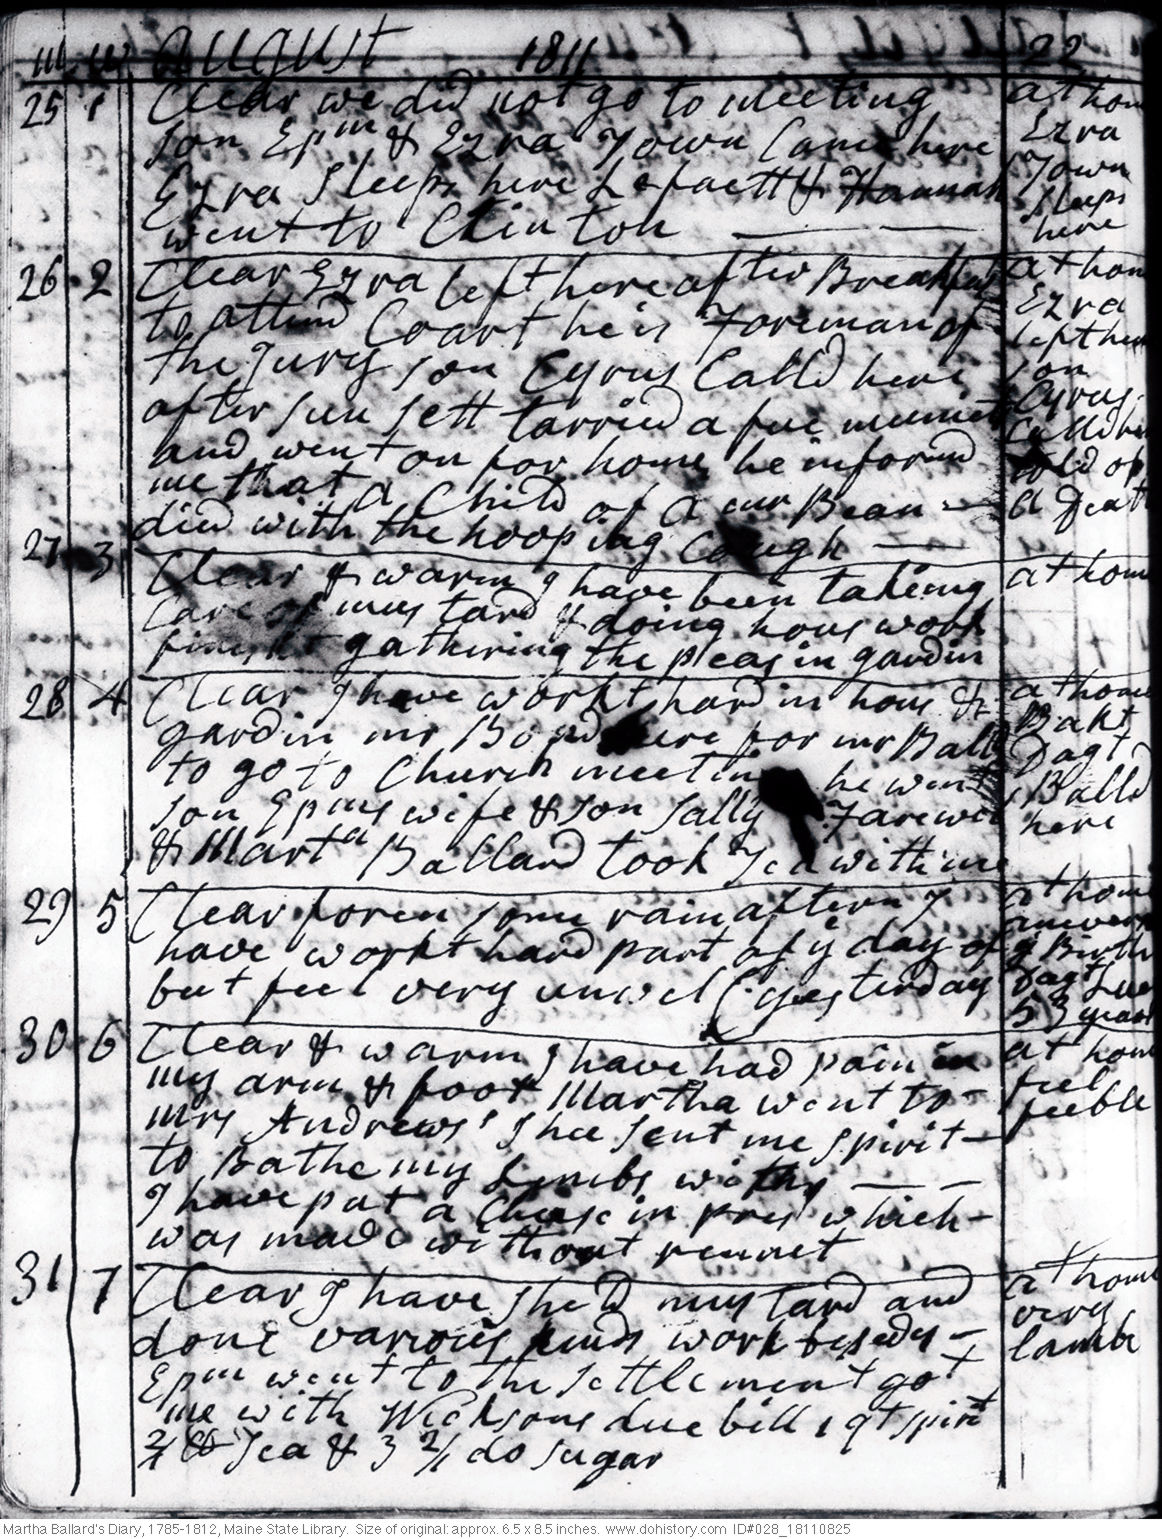 m w August 1811 22
25 1 Clear we did not go to meeting
Son Epm & Ezra Town Came here
Ezra sleeps here Lafaett & Hannah
went to Clinton
at hom
Ezra
Town
sleeps
here
26 2 Clear Ezra left here after Breakfast
to attend Coart he is Foreman of
the Jury son Cyrus Calld here
after sun sett tarried a fue
and went on for home he informd
me that a Child of Bean
died with the hooping Cough
at hom
Ezra
left her
son
Cyrus
Calld
told of
a Deat
27 3 Clear & warm I have been takeing
Care of mustard & doing hous work
finisht gathering the peas in gardin
at hom
28 4 Clear I have workt hard in hous &
gardin mr here for mr Ball
to go to Church meeting he went
son Epms wife & son Sally Farewel
& Marta Ballard took Tea with me
at home
Bakt
Dagt
Balld
here
29 5 Clear foren some rain aftern I
have workt hard part of ye day of
but feel very unwel (yesterday
at home
Birth
Dagt
53 years
30 6 Clear & warm I have had pain in
my arm & foot Martha went to
mrs Andrews' shee sent me spirit
to Bathe my Limbs with
I have put a Chese in pres which
was made without rennet
at hom
feel
feeble
31 7 Clear I have sheld mustard and
done various kinds work besides
Epm went to the settlement got
me with Wicksons due bill 1 qt spirit
& Tea & 3 do sugar
at home
very
lambe
Martha Ballard's Diary, 1785-1812, Maine State Library. Size of original: approx. 6.5 x 8.5 inches. www.dohistory.com ID#028_18110825